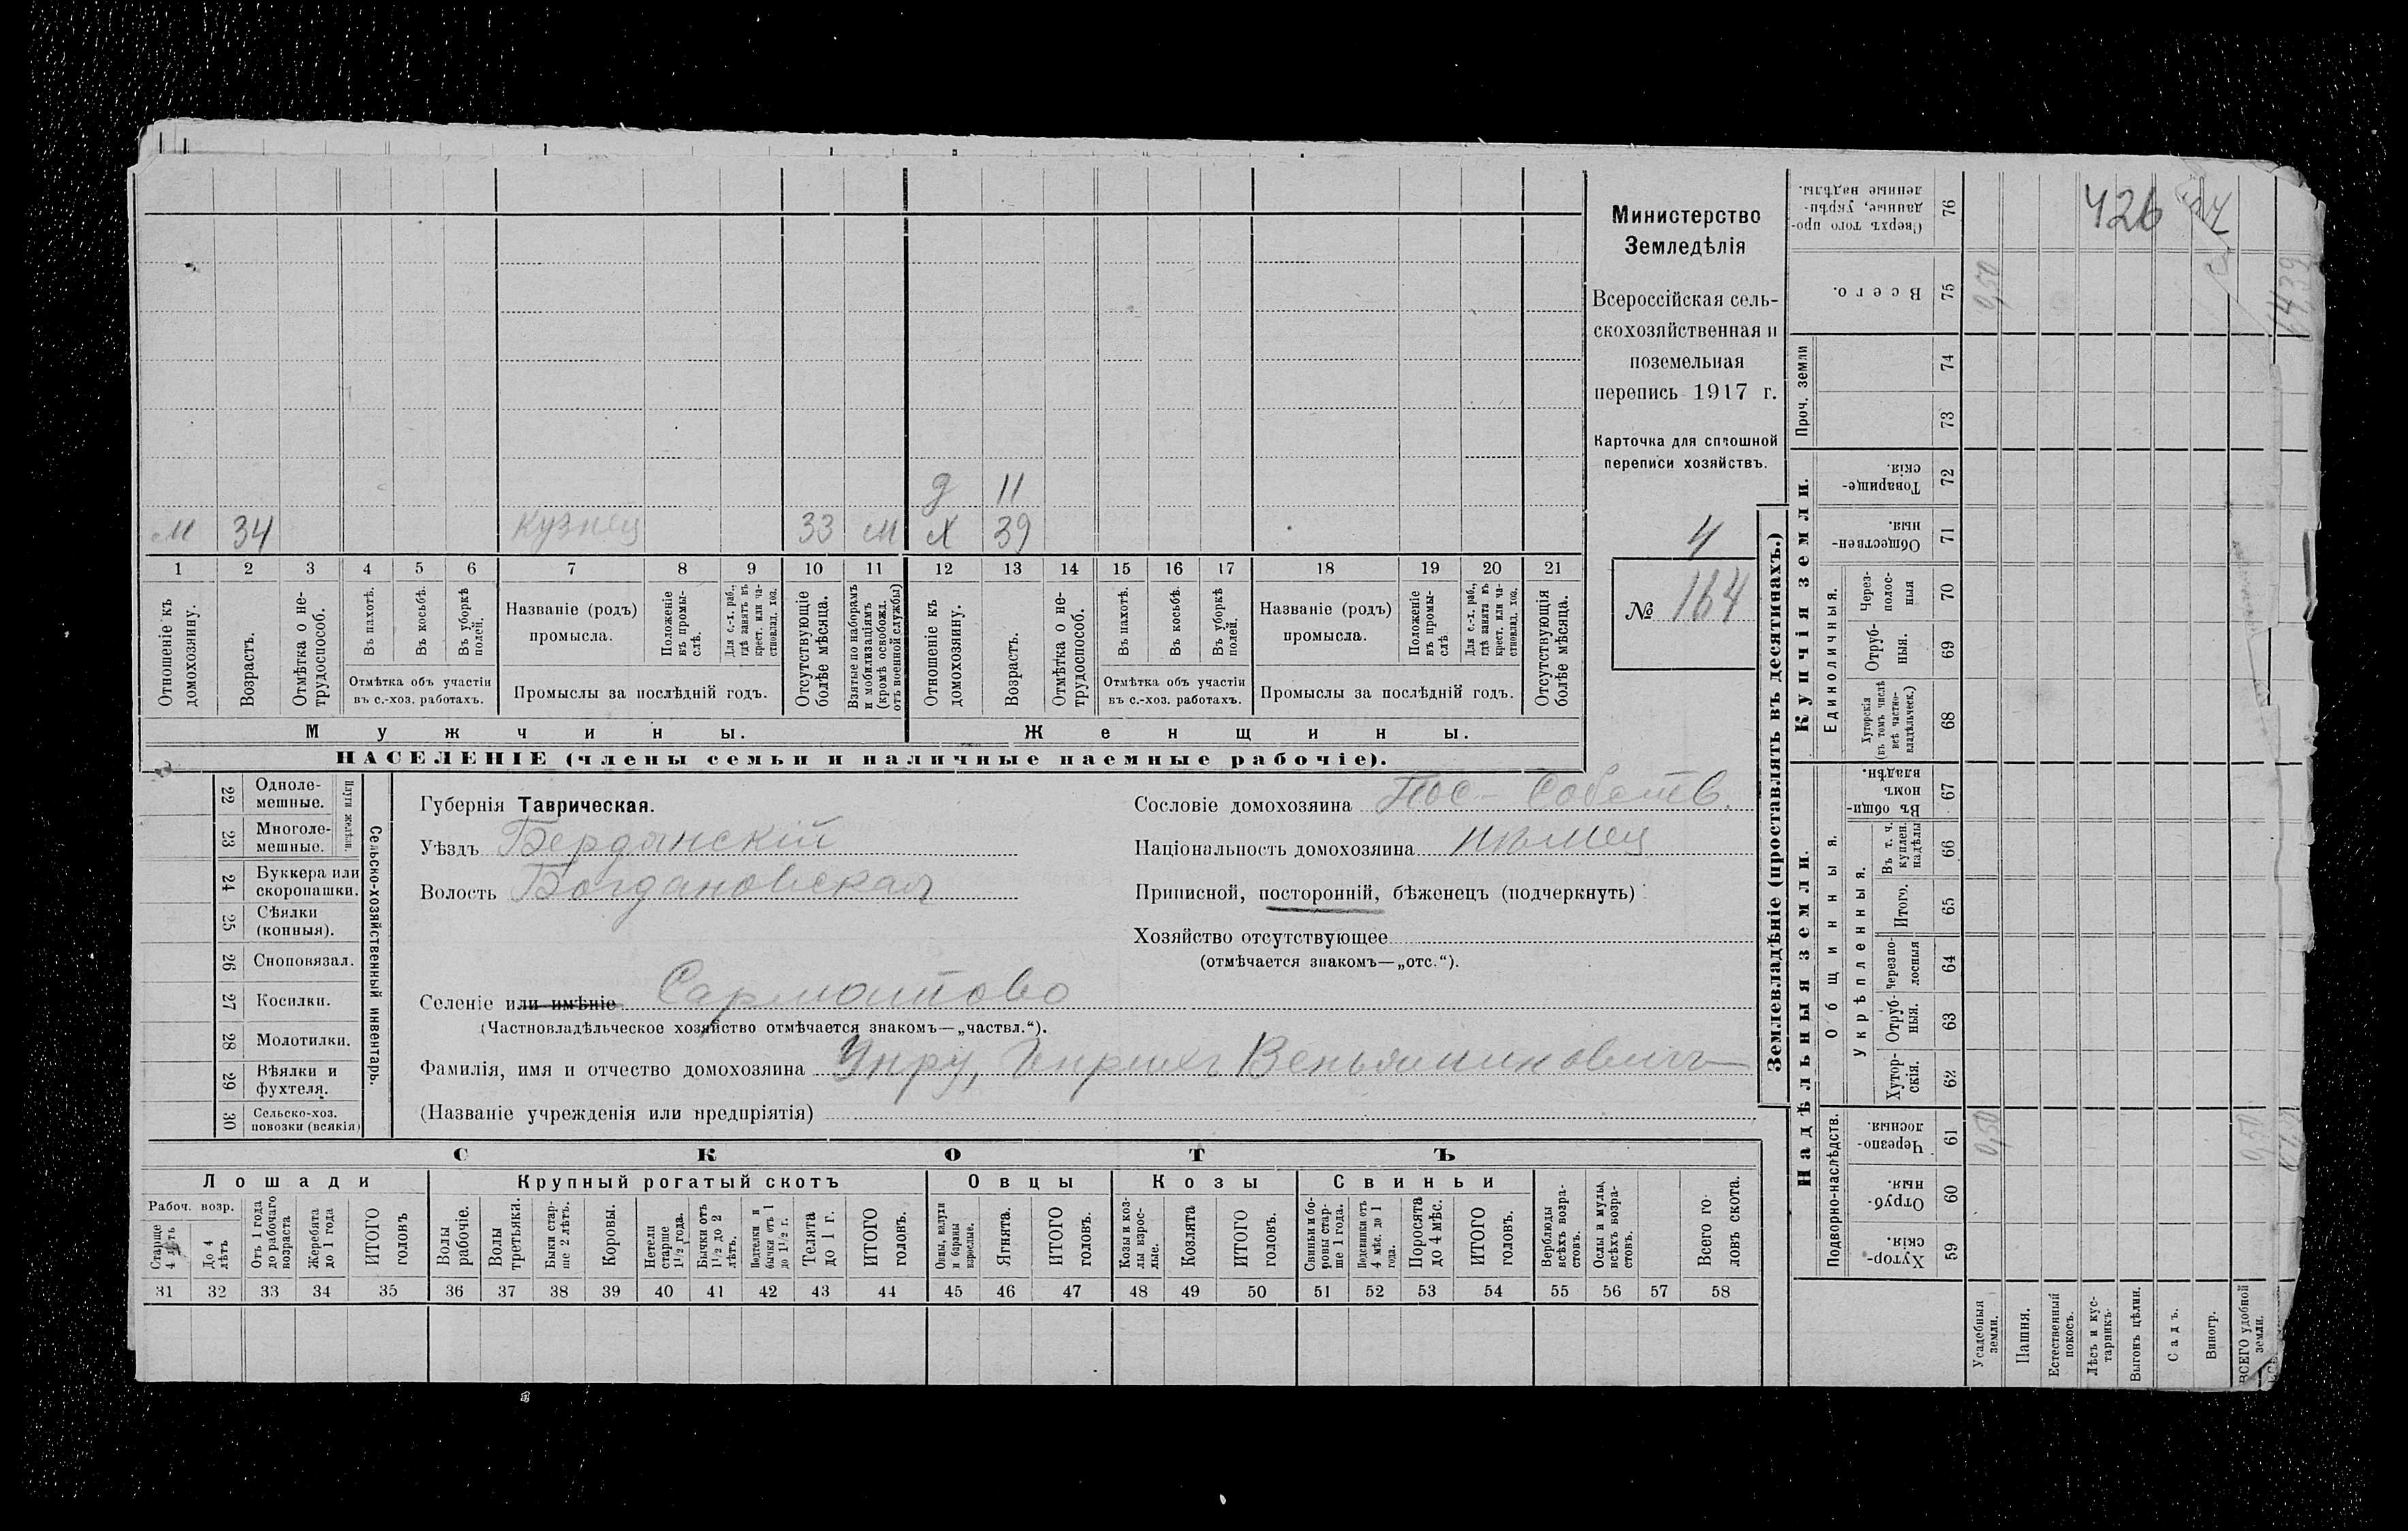 Министерство
Земледѣлія
Всероссійская сель-
скохозяйственная и
поземельная
перепись 1917 г.
Карточка для сплошной
переписи хозяйствъ.
4
№ 164
д 11
м 34 кузнец 33 м х 39
1 2 3 4 5 6 7 8 9 10 11 12 13 14 15 16 17 18 19 20 21
Отношеніе къ домохозяину.
Возрастъ.
Отмѣтка о не-трудоспособ.
Въ пахотѣ.
Въ косьбѣ.
Въ уборкѣ полей.
Отмѣтка объ участіи въ с.-хоз. работахъ.
Названіе (родъ) промысла.
Положеніе въ промы-слѣ.
Для с.-х. раб., гдѣ занятъ въ крест. или ча-стновлад. хоз.
Промыслы за послѣдній годъ.
Отсутствующіе болѣе мѣсяца.
Взятые по наборамъ и мобилизаціямъ (кромѣ освобожд. отъ военной службы)
Отношеніе къ домохозяину.
Возрастъ.
Отмѣтка о не-трудоспособ.
Въ пахотѣ.
Въ косьбѣ.
Въ уборкѣ полей.
Отмѣтка объ участіи въ с.-хоз. работахъ.
Названіе (родъ) промысла.
Положеніе въ промы-слѣ
Для с.-х. раб., гдѣ занята въ крест. или ча-стновлад. хоз.
Промыслы за послѣдній годъ.
Отсутствующія болѣе мѣсяца.
Мужчины.
Женщины.
НАСЕЛЕНІЕ (члены семьи и наличные наемные рабочіе).
22 Одноле-мешные.
23 Многоле-мешные.
Плуги желѣзн.
24 Буккера или скоропашки.
25 Сѣялки (конныя).
26 Сноповязал.
27 Косилки.
28 Молотилки.
29 Вѣялки и фухтеля.
30 Сельско-хоз. повозки (всякія)
Сельско-хозяйственный инвентарь.
Губернія Таврическая.
Уѣздъ Бердянскій
Волость Богдановская
Сословіе домохозяина Пос-Собств.
Національность домохозяина нѣмец
Приписной, посторонній, бѣженецъ (подчеркнуть)
Хозяйство отсутствующее
(отмѣчается знакомъ—„отс.“).
Селеніе или имѣніе Сарматово
(Частновладѣльческое хозяйство отмѣчается знакомъ—„частвл.“).
Фамилія, имя и отчество домохозяина Унру, Генрихъ Веньяминовичъ
(Названіе учрежденія или предпріятія)
СКОТЪ
Лошади
Крупный рогатый скотъ
Овцы
Козы
Свиньи
Рабоч. возр.
Старше 4 лѣтъ
До 4 лѣтъ
Отъ 1 года до рабочаго возраста
Жеребята до 1 года
ИТОГО головъ
Волы рабочіе.
Волы третьяки.
Быки стар-ше 2 лѣтъ.
Коровы.
Нетели старше 1½ года.
Бычки отъ 1½ до 2 лѣтъ.
Подтелки и бычки отъ 1 до 1½ г.
Телята до 1 г.
ИТОГО головъ.
Овцы, валухи и бараны взрослые.
Ягнята.
ИТОГО головъ.
Козы и коз-лы взрос-лые.
Козлята
ИТОГО головъ.
Свиньи и бо-ровы стар-ше 1 года.
Подсвинки отъ 4 мѣс. до 1 года.
Поросята до 4 мѣс.
ИТОГО головъ.
Верблюды всѣхъ возра-стовъ.
Ослы и мулы, всѣхъ возра-стовъ.
Всего го-ловъ скота.
31 32 33 34 35 36 37 38 39 40 41 42 43 44 45 46 47 48 49 50 51 52 53 54 55 56 57 58
Землевладѣніе (проставлять въ десятинахъ.)
Купчія земли.
Надѣльныя земли.
Проч. земли
Единоличныя.
Общинныя.
Укрѣпленныя.
Подворно-наслѣдств.
76 Сверхъ того про-данные, укрѣп-ленные надѣлы.
75 Всего.
74
73
72 Товарище-скія.
71 Обществен-ныя.
70 Через-полос-ныя
69 Отруб-ныя.
68 Хуторскія (въ томъ числѣ всѣ частно-владѣльческ.)
67 Въ общин-номъ владѣн.
66 Въ т. ч. куплен. надѣлы
65 Итого.
64 Черезпо-лосныя
63 Отруб-ныя.
62 Хутор-скія.
61 Черезпо-лосныя.
60 Отруб-ныя.
59 Хутор-скія.
426
0,50
1439
0,50
0,50
Усадебныя земли.
Пашня.
Естественный покосъ.
Лѣсъ и кус-тарникъ.
Выгонъ цѣлин.
Садъ.
Виногр.
ВСЕГО удобной земли.